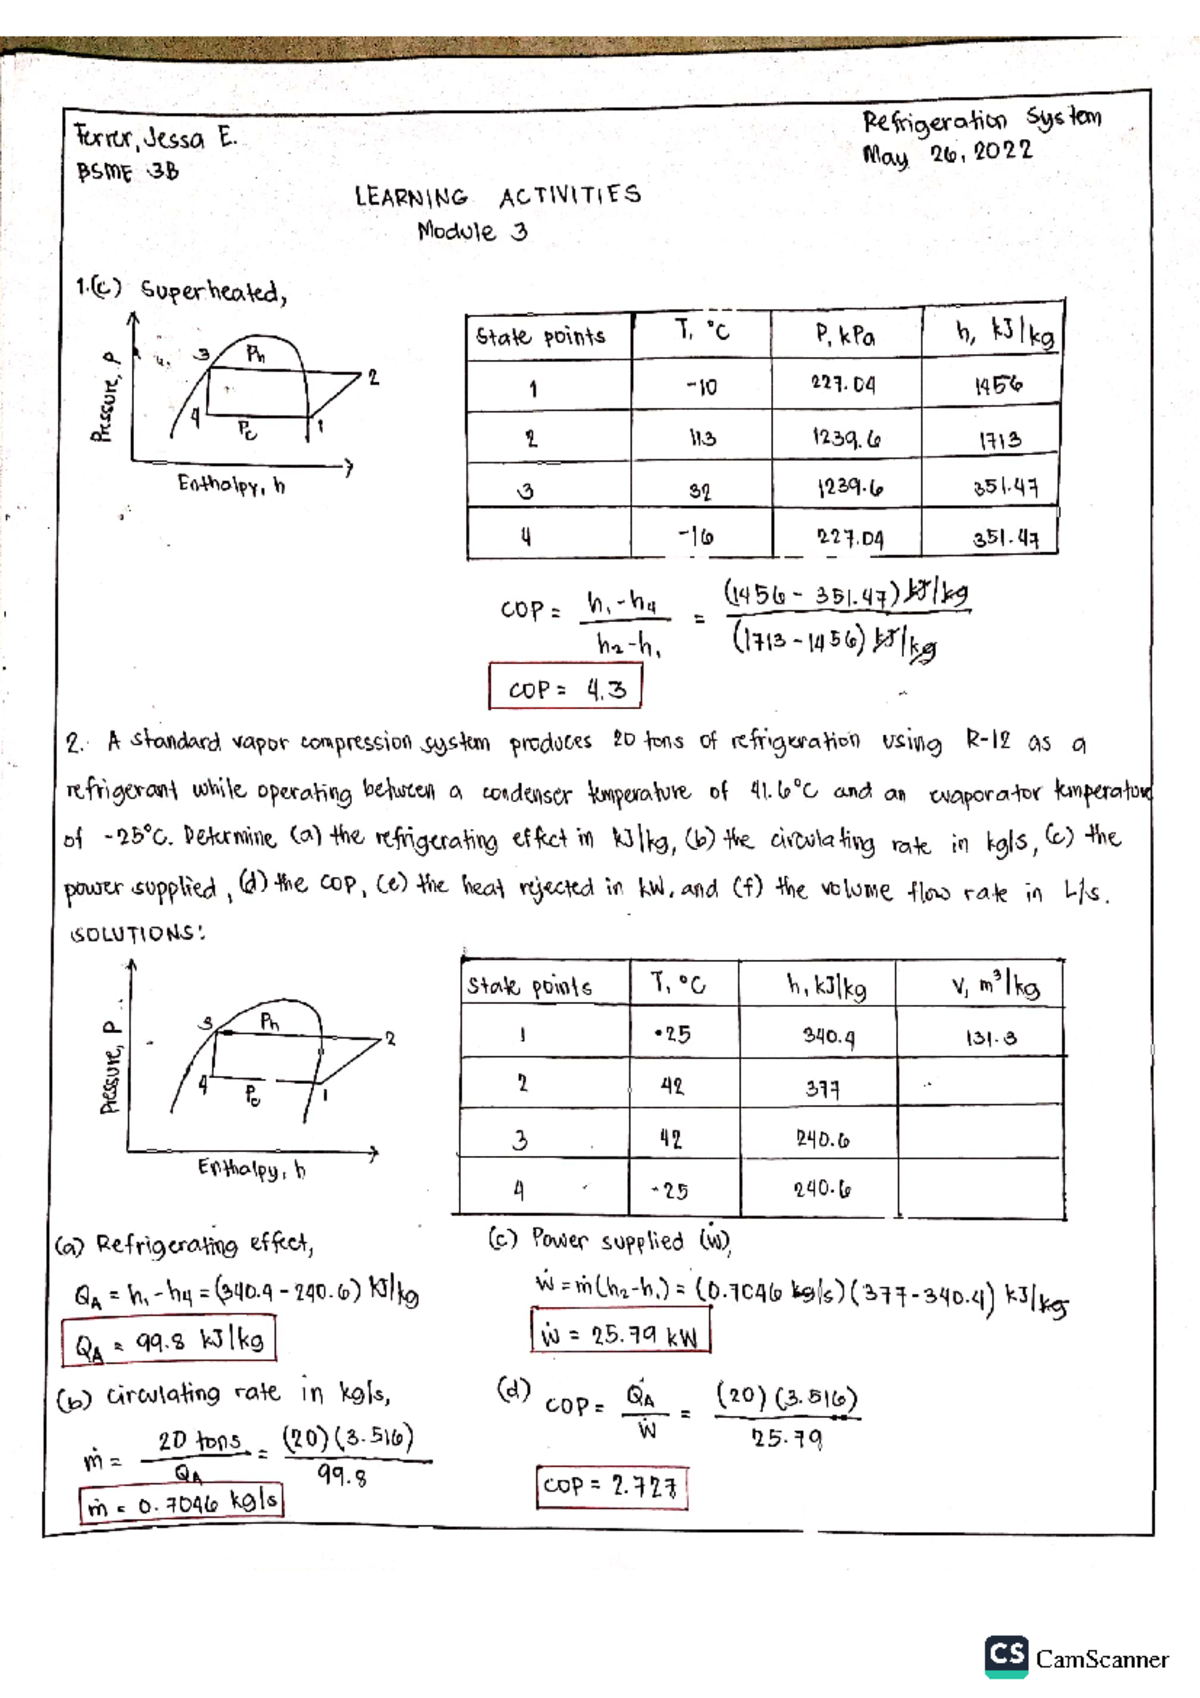 Ferrer, Jessa E.
Refrigeration System
BSME 3B
May 26, 2022
LEARNING ACTIVITIES
Module 3
1.(c) Superheated,
Pressure, P
3 Ph 2
4 Pc 1
Enthalpy, h
State points T, °C P, kPa h, kJ/kg
1 -10 227.04 1456
2 113 1239.6 1713
3 32 1239.6 351.47
4 -16 227.04 351.47
COP = h₁-h₄ / h₂-h₁ = (1456 - 351.47) kJ/kg / (1713 - 1456) kJ/kg
COP = 4.3
2. A standard vapor compression system produces 20 tons of refrigeration using R-12 as a
refrigerant while operating between a condenser temperature of 41.6°C and an evaporator temperature
of -25°C. Determine (a) the refrigerating effect in kJ/kg, (b) the circulating rate in kg/s, (c) the
power supplied, (d) the COP, (e) the heat rejected in kW, and (f) the volume flow rate in L/s.
SOLUTIONS:
Pressure, P
3 Ph 2
4 Pc 1
Enthalpy, h
State points T, °C h, kJ/kg v, m³/kg
1 -25 340.4 131.3
2 42 377
3 42 240.6
4 -25 240.6
(a) Refrigerating effect,
QA = h₁ - h₄ = (340.4 - 240.6) kJ/kg
QA = 99.8 kJ/kg
(b) Circulating rate in kg/s,
ṁ = 20 tons / QA = (20)(3.516) / 99.8
ṁ = 0.7046 kg/s
(c) Power supplied (ẇ),
ẇ = ṁ(h₂-h₁) = (0.7046 kg/s)(377-340.4) kJ/kg
ẇ = 25.79 kW
(d) COP = Q̇A / Ẇ = (20)(3.516) / 25.79
COP = 2.727
CS CamScanner